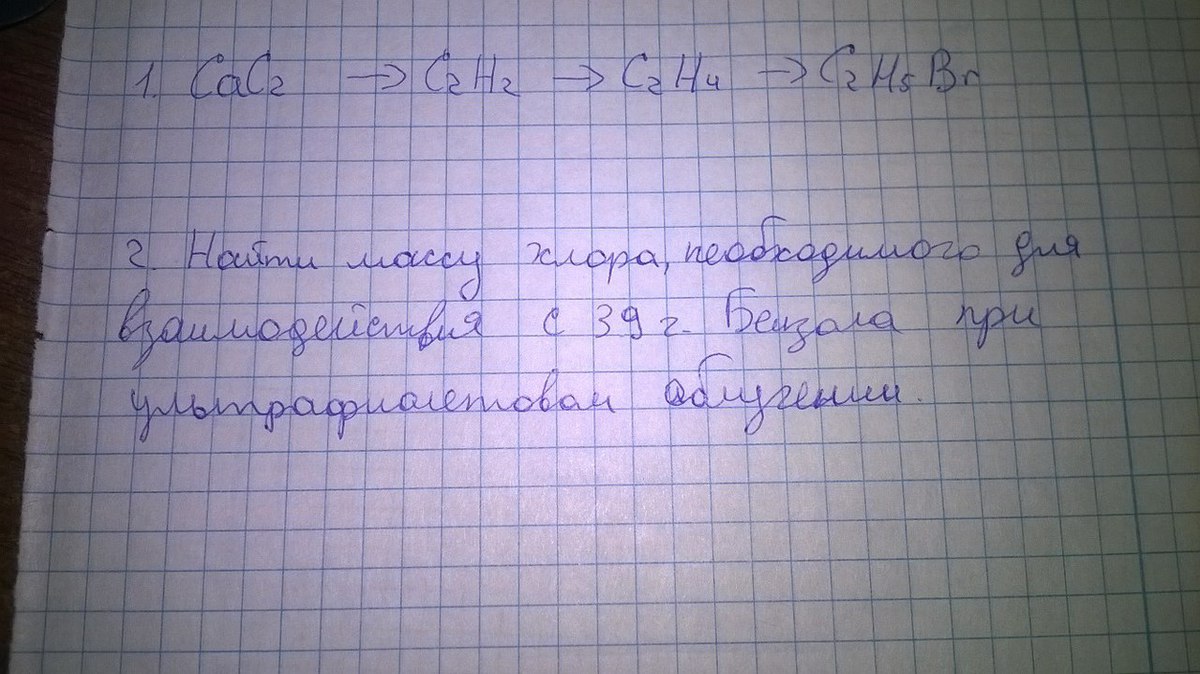 1. CaC₂ → C₂H₂ → C₂H₄ → C₂H₅Br
2. Найти массу хлора, необходимого для
взаимодействия с 39 г. Бензола при
ультрафиолетовом облучении.